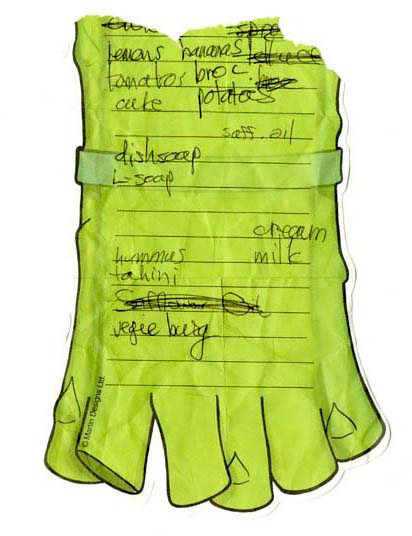 lemons bananas
tomatoes broc.
cake potatoes
saff. oil
dishsoap
L-soap
cream
hummus milk
tahini
Safflower Oil
vegie burg
© Martin Designs Ltd.